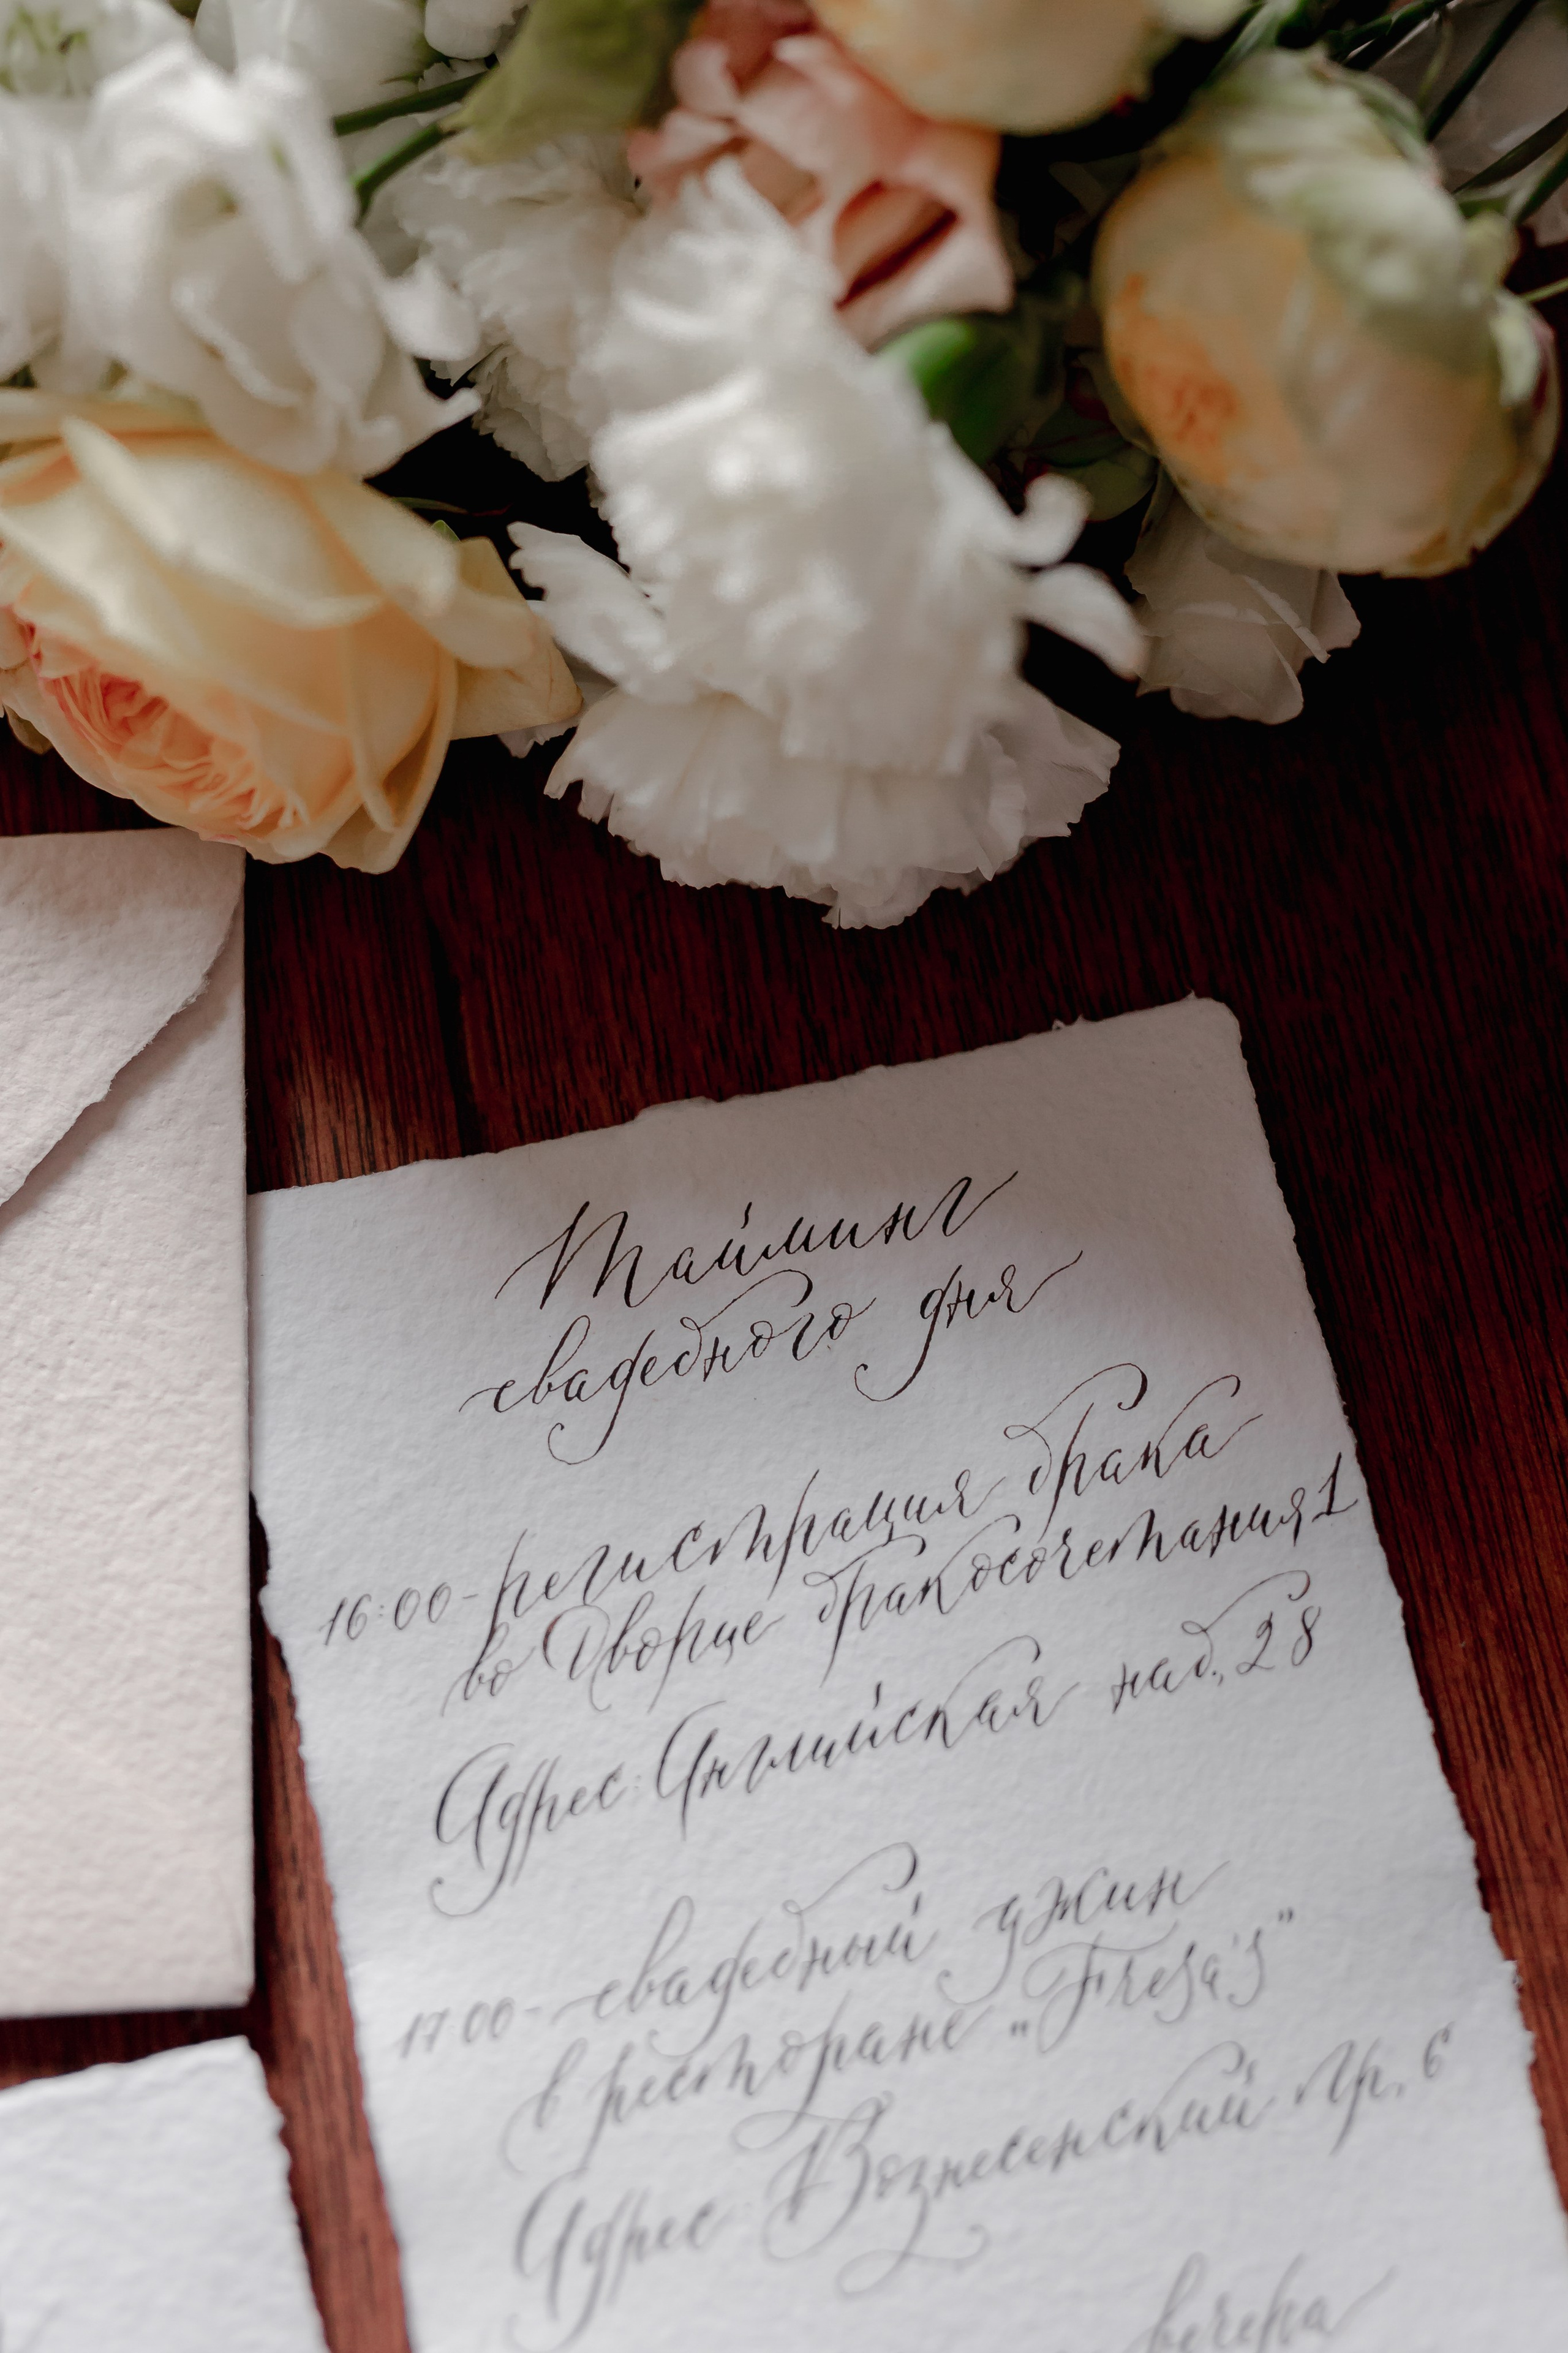 Тайминг
свадебного дня
16:00 - регистрация брака
во Дворце бракосочетания 1
Адрес: Английская наб., 28
17 00 - свадебный джин
в ресторане "Fresa's"
Адрес: Вознесенский пр., 6
вечера